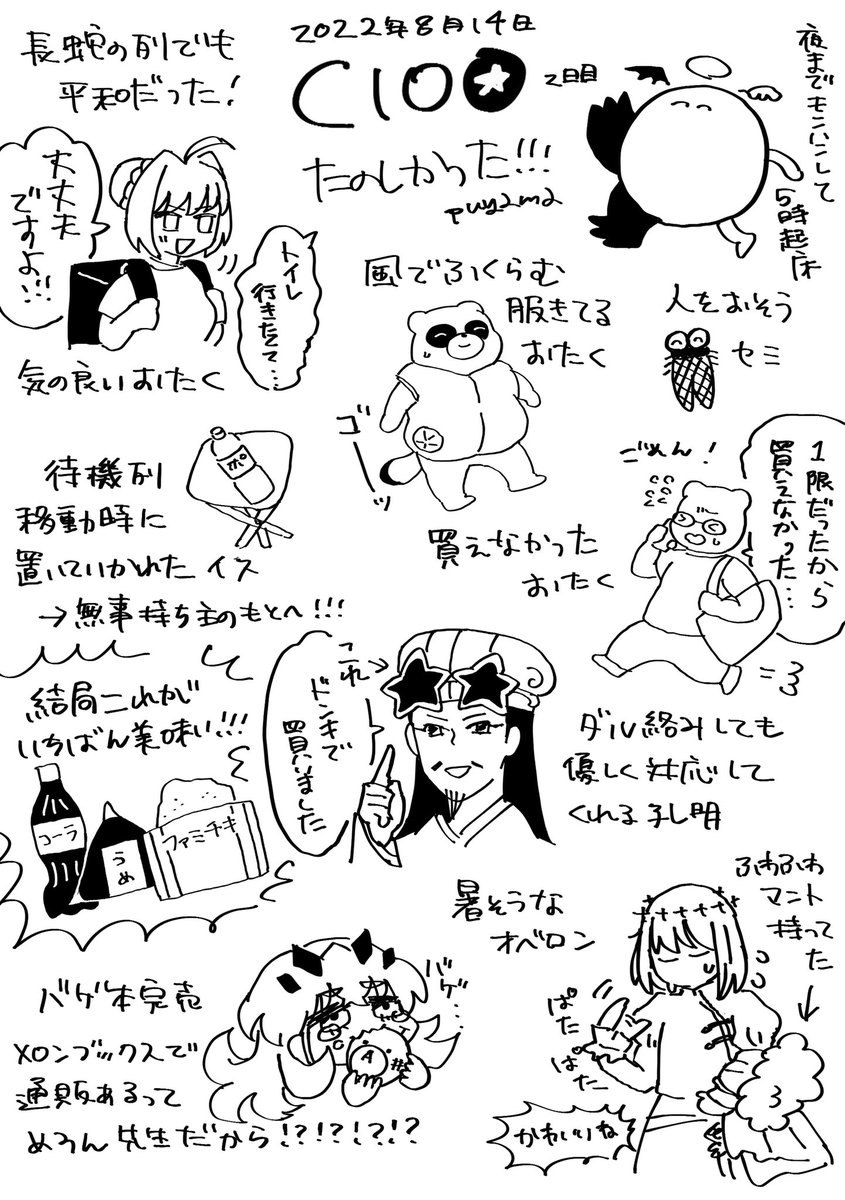 2022年8月14日
C100
2日目
たのしかった!!!
puyama
長蛇の列でも
平和だった!
大丈夫
ですよ!!!
トイレ
行きたくて…
気の良いおたく
夜までモンハンして
5時起床
風でふくらむ
服きてる
おたく
ゴーッ
人をおそう
セミ
待機列
移動時に
置いていかれたイス
→無事持ち主のもとへ!!!
ポ
買えなかった
おたく
ごめん!
1限だったから
買えなかった…
=3
結局これが
いちばん美味い!!!
コーラ
うめ
ファミチキ
これ→
ドンキで
買いました
ダル絡みしても
優しく対応して
くれる孔明
暑そうな
オベロン
ふわふわ
マント
持って
た
ぱた
ぱた
かわいいね
バゲ本完売
メロンブックスで
通販あるって
めろん先生だから!?!?!?!?
バゲ…